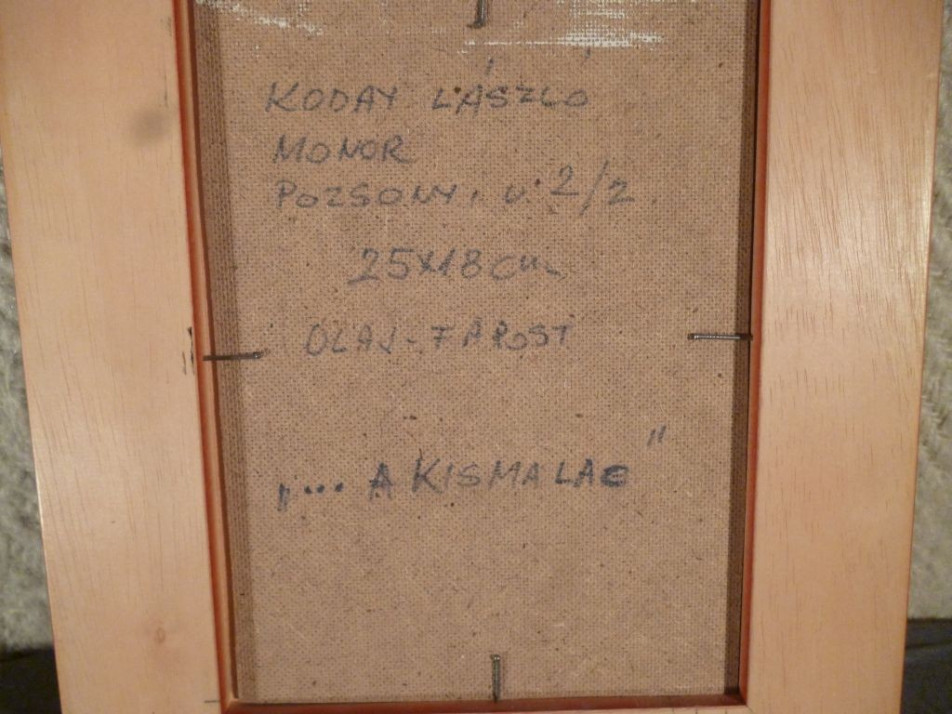 KODAY LÁSZLÓ
MONOR
POZSONY. U. 2/2.
25x18 cm
OLAJ-FAROST
„... A KISMALAC"